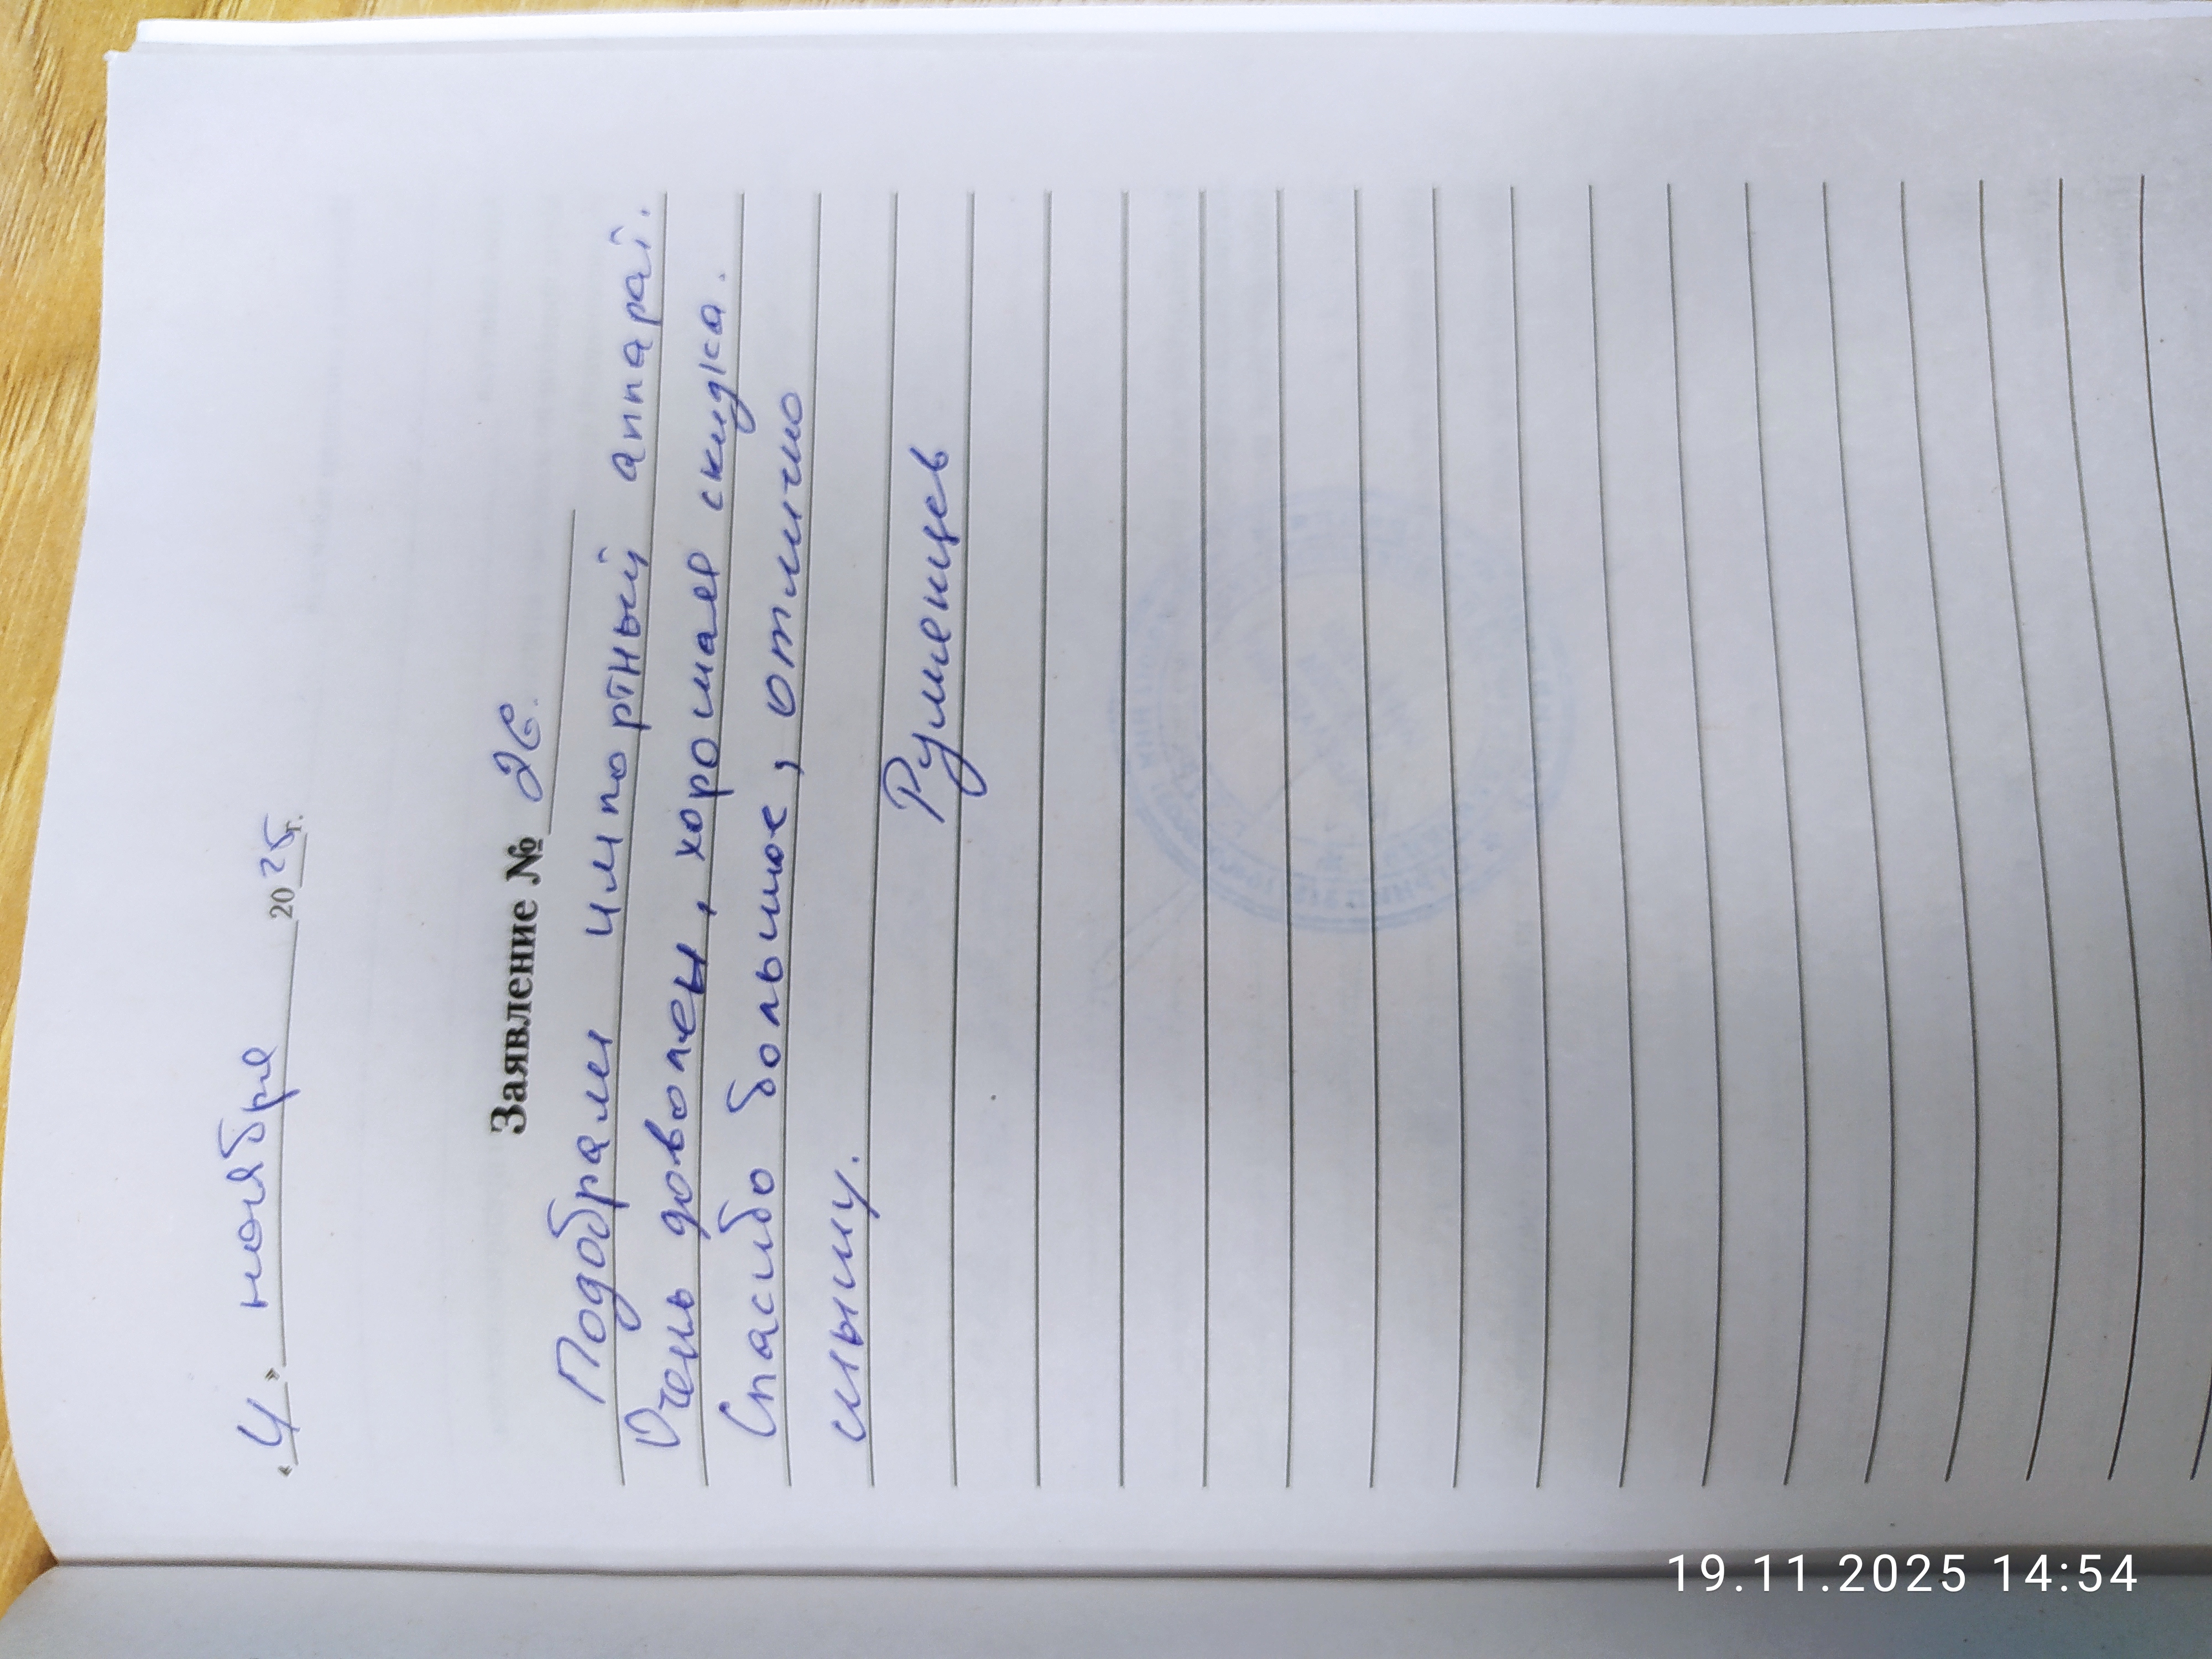 «4» ноября 2025 г.
Заявление № 26.
Подобрали импортный аппарат.
Очень доволен, хорошая скидка.
Спасибо большое, отлично
слышу.
Румянцев
19.11.2025 14:54